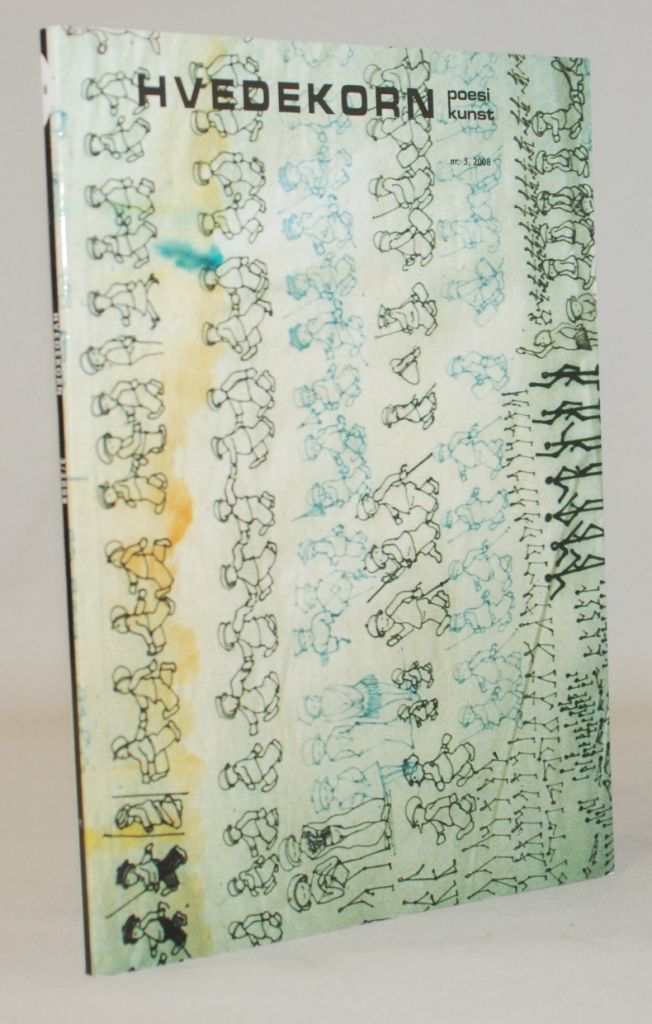 HVEDEKORN
poesi
kunst
nr. 3, 2008
HVEDEKORN